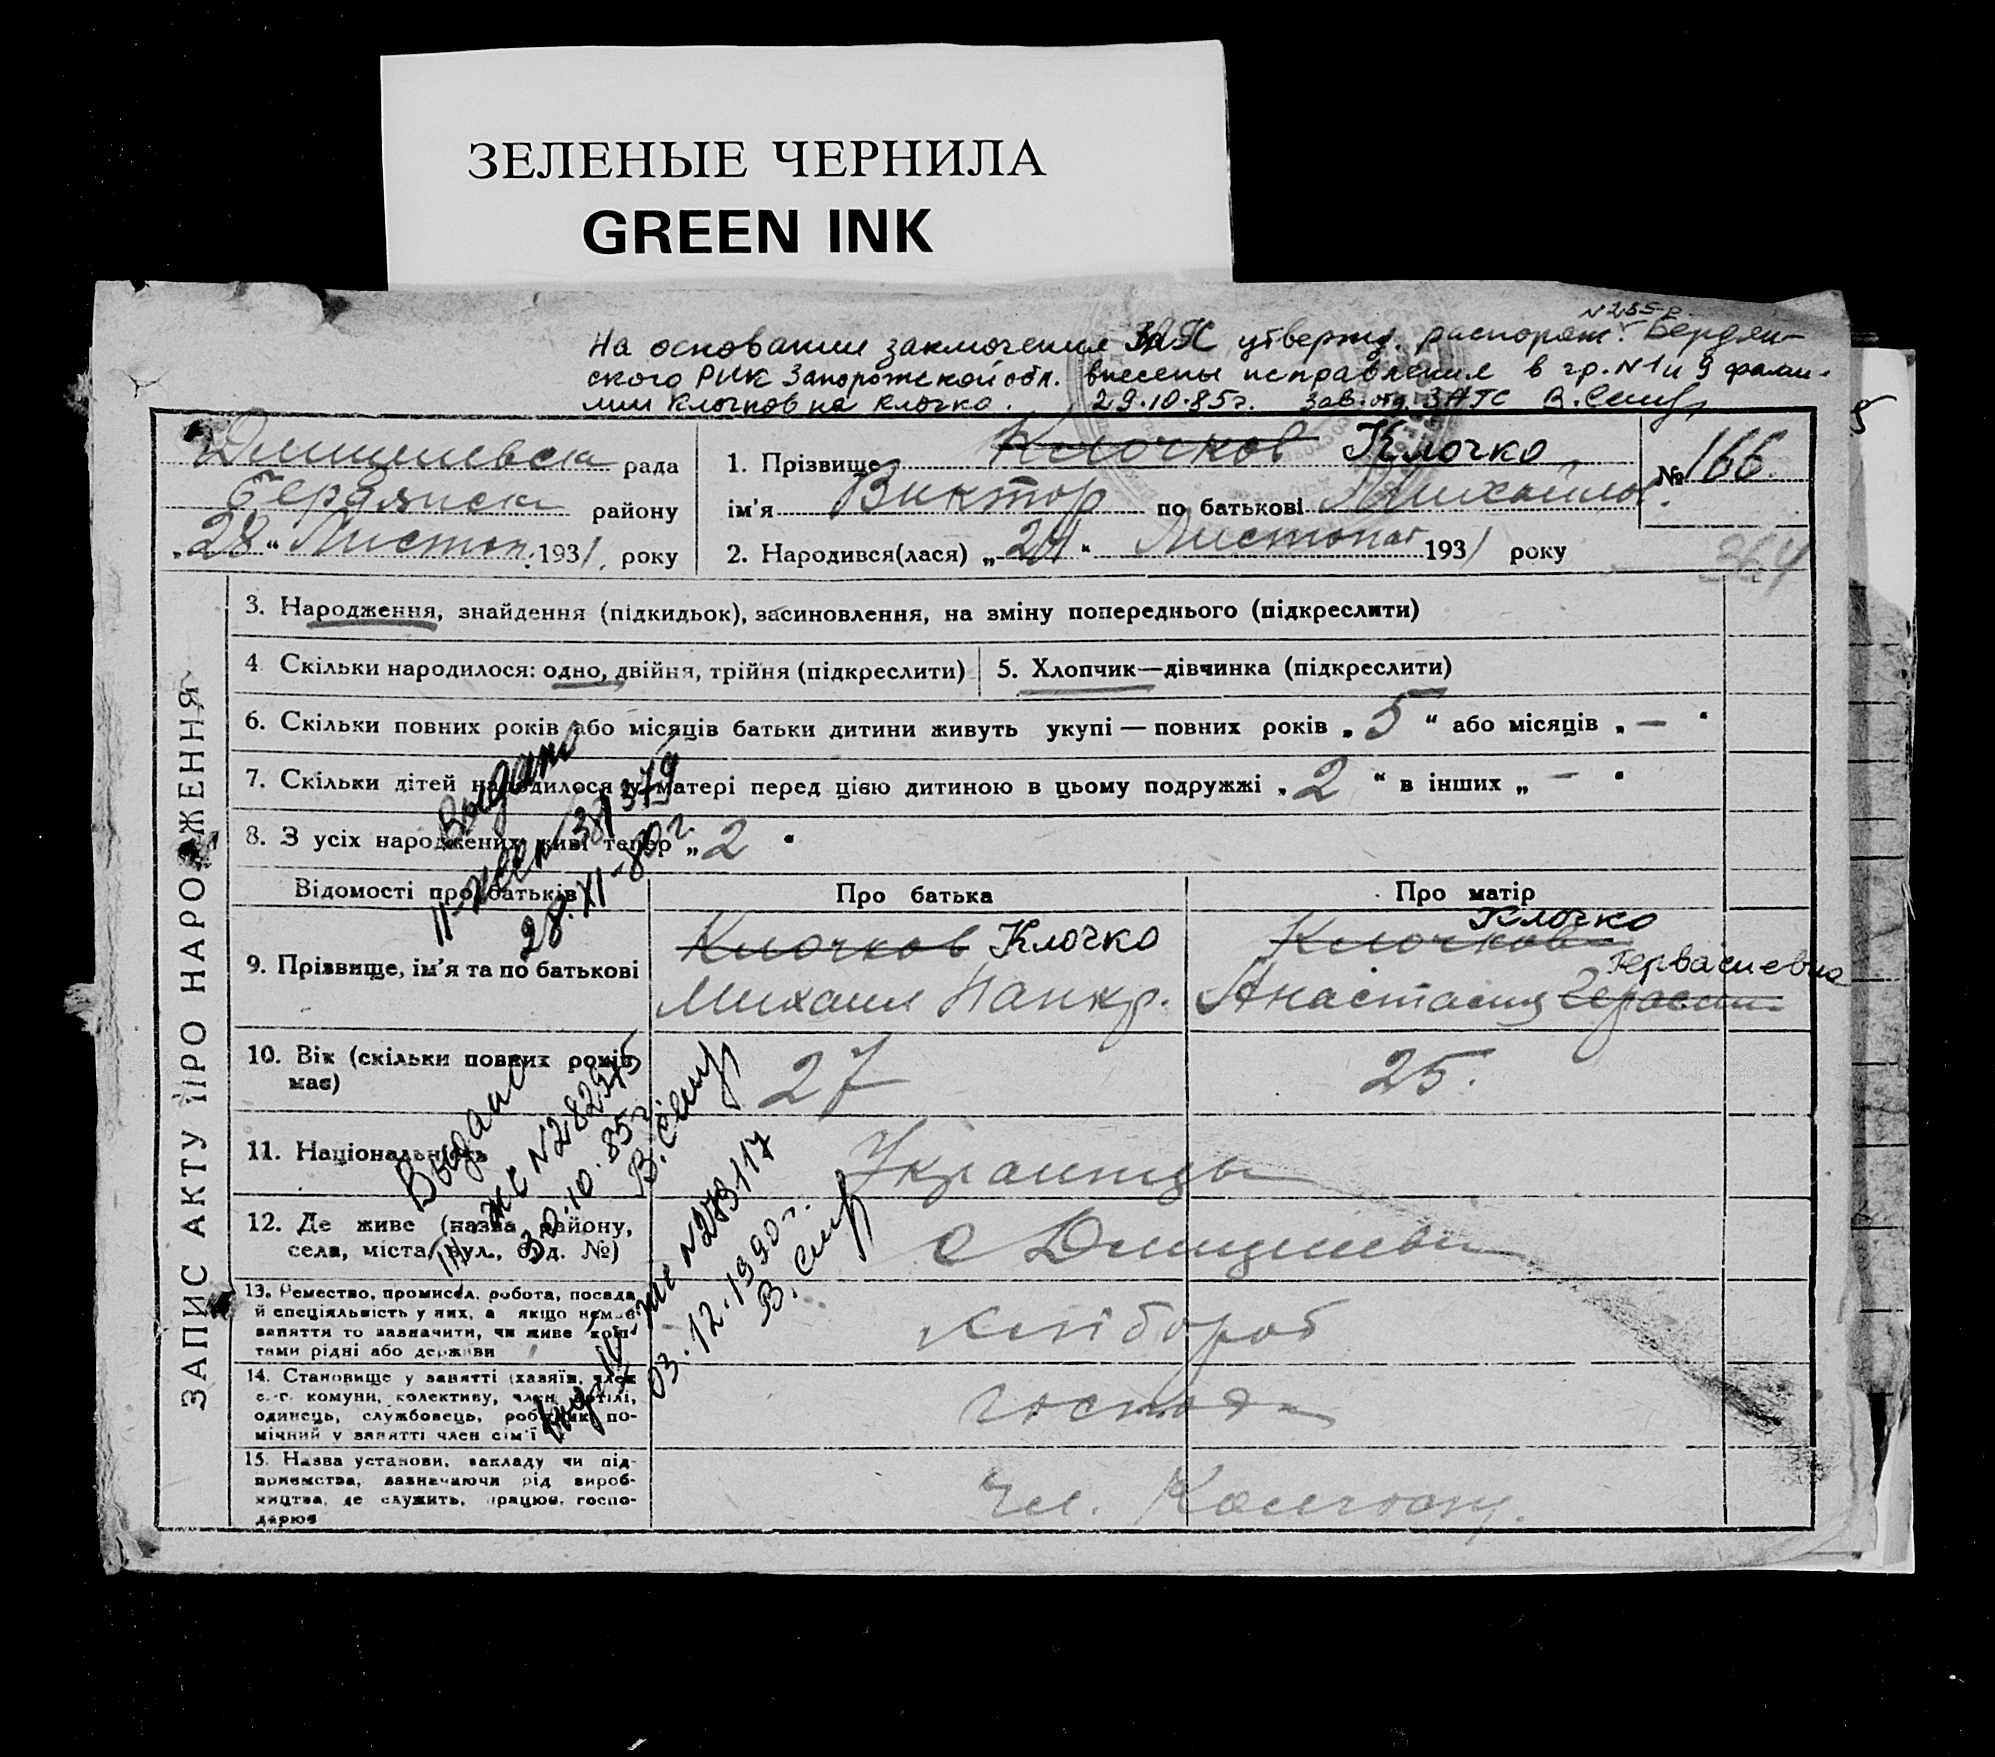 ЗЕЛЕНЫЕ ЧЕРНИЛА
GREEN INK
N 285-р
На основании заключения ЗАГС утвержд. распоряж. Бердян-
ского РИК Запорожской обл. внесены исправления в гр. N 1 и 9 фами-
лии Клочков на Клочко. 29.10.85г. Зав. отд. ЗАГС В.
рада
Бердянськ району
„28“ Листоп. 1931, року
1. Прізвище Клочков Клочко
ім'я Виктор по батькові Михайлов.
2. Народився(лася) „24“ Листопад 1931 року
№ 166.
364
ЗАПИС АКТУ ПРО НАРОДЖЕННЯ
3. Народження, знайдення (підкидьок), засиновлення, на зміну попереднього (підкреслити)
4. Скільки народилося: одно, двійня, трійня (підкреслити)
5. Хлопчик—дівчинка (підкреслити)
6. Скільки повних років або місяців батьки дитини живуть укупі — повних років „5“ або місяців „—“
7. Скільки дітей народилося у матері перед цією дитиною в цьому подружжі „2“ в інших „—“
8. З усіх народжених живі тепер „2“
Выдано
381379
28.XI-80г.
Відомості про батьків
Про батька
Про матір
9. Прізвище, ім'я та по батькові
Клочков Клочко
Михаил Панкр.
Клочко
Клочкова
Гервасиевна
Анастасия Герасим
10. Вік (скільки повних років має)
27
25.
11. Національність
Украинцы
Выдано
III-ЖС N 282975
30.10.85г.
В.
12. Де живе (назва району,
села, міста, вул., буд. №)
с
13. Ремество, промисел, робота, посада
й спеціяльність у них, а якщо немає
заняття то зазначити, чи живе кош-
тами рідні або держави
хлібороб
N 279117
03.12.1990г.
В.
14. Становище у занятті (хазяїн, член
с.-г. комуни, колективу, член артілі,
одинець, службовець, робітник, по-
мічний у занятті член сім'ї
господ
15. Назва установи, закладу чи під-
приємства, зазначаючи рід вироб-
ництва, де служить, працює, госпо-
дарює
чл. Колгоспу.